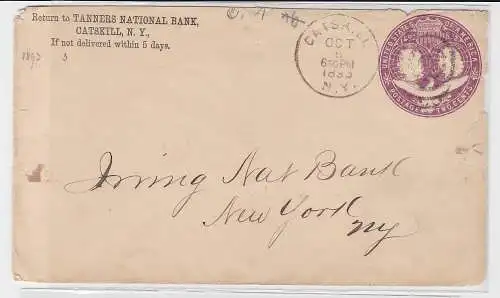 Return to TANNERS NATIONAL BANK,
CATSKILL, N. Y.,
If not delivered within 5 days.
1893
3
CATSKILL
OCT
6 30 PM
1893
N.Y.
UNITED STATES OF AMERICA
POSTAGE TWO CENTS
Irving Nat Bank
New York
NY